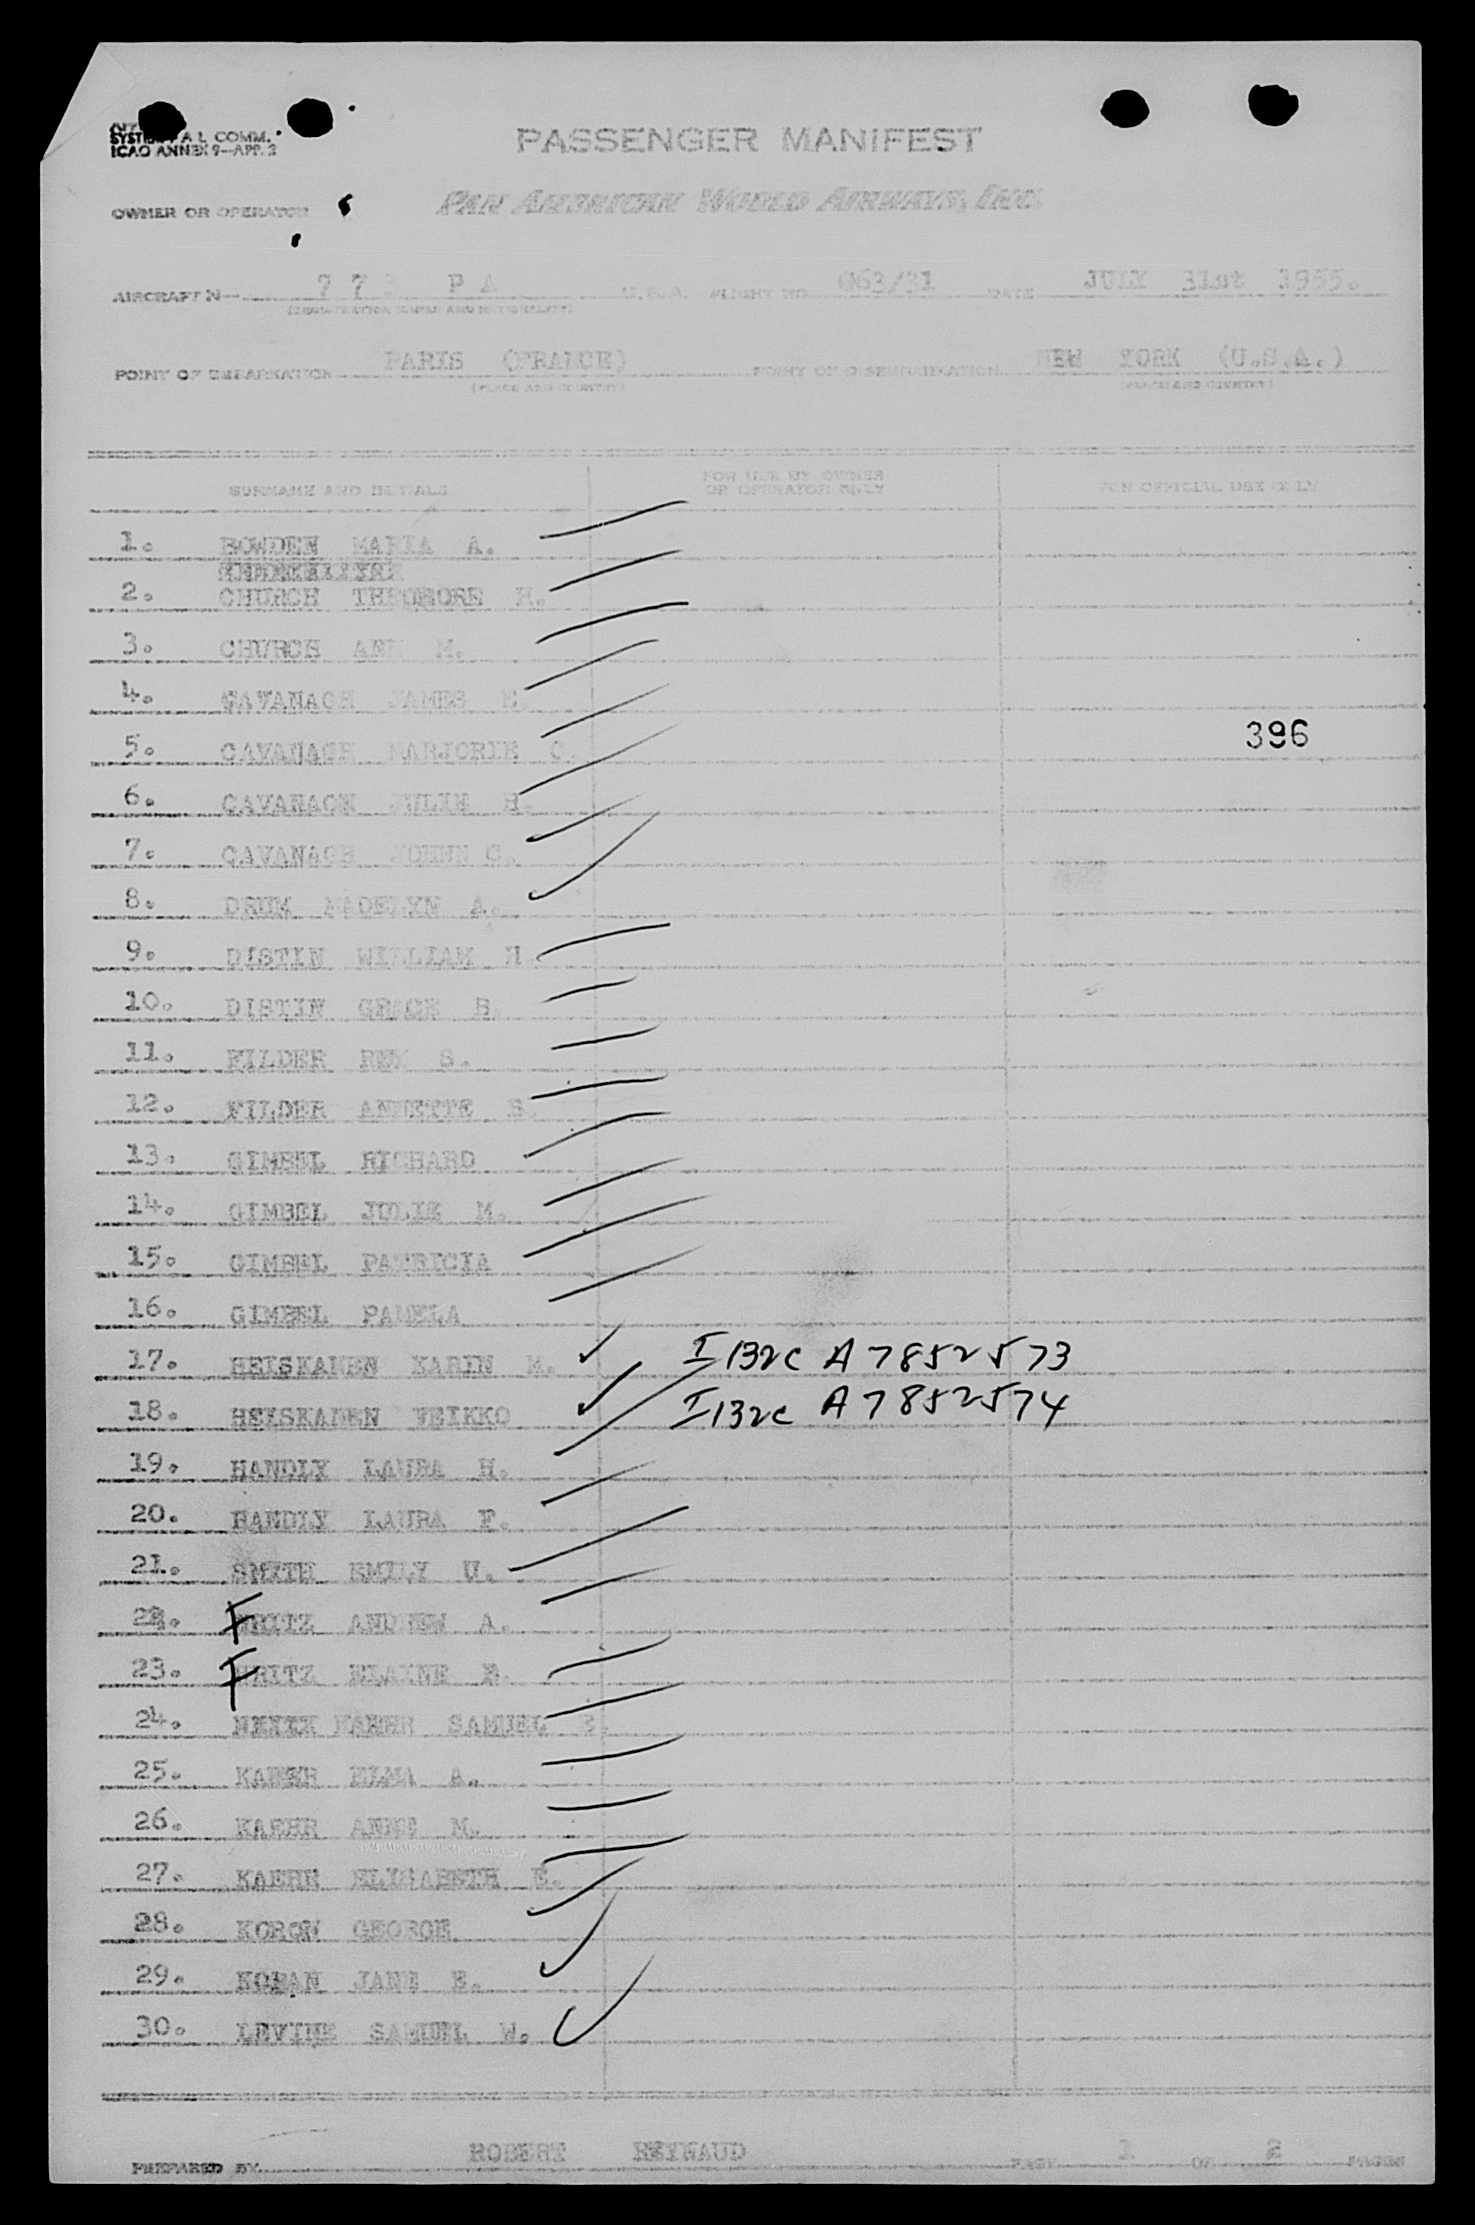 SYSTEM
A L COMM.
ICAO ANNEX 9—APP. 3
PASSENGER MANIFEST
OWNER OR OPERATOR
PAN AMERICAN WORLD AIRWAYS, INC.
AIRCRAFT N— PA U.S.A. FLIGHT NO. 063/31 DATE JULY 31st 1955.
(REGISTRATION MARKS AND NATIONALITY)
POINT OF EMBARKATION PARIS (FRANCE) POINT OF DISEMBARKATION NEW YORK (U.S.A.)
(PLACE AND COUNTRY) (PLACE AND COUNTRY)
SURNAME AND INITIALS FOR USE BY OWNER OR OPERATOR ONLY FOR OFFICIAL USE ONLY
1. BOWDEN MARIA A.
2. CHURCH THEODORE H.
3. CHURCH ANN M.
4. CAVANAGH JAMES E.
5. CAVANAGH MARJORIE C. 396
6. CAVANAGH JULIE H.
7. CAVANAGH C.
8. DRUM MADELYN A.
9. DISTIN WILLIAM H.
10. DISTIN GRACE B.
11. FILDER REX S.
12. FILDER ANNETTE S.
13. GIMBEL RICHARD
14. GIMBEL JULIE M.
15. GIMBEL PATRICIA
16. GIMBEL PAMELA
17. HEISKANEN KARIN M. I 132c A7852573
18. HEISKANEN VEIKKO I 132c A7852574
19. HANDLY LAURA H.
20. HANDLY LAURA F.
21. SMITH EMILY U.
22. FRITZ ANDREW A.
23. FRITZ ELAINE B.
24. KAEHR SAMUEL
25. KAEHR ELMA A.
26. KAEHR ANNE M.
27. KAEHR ELISABETH E.
28. KORON GEORGE
29. KORAN JANE E.
30. LEVINE SAMUEL W.
PREPARED BY ROBERT REYNAUD PAGE 1 OF 2 PAGES